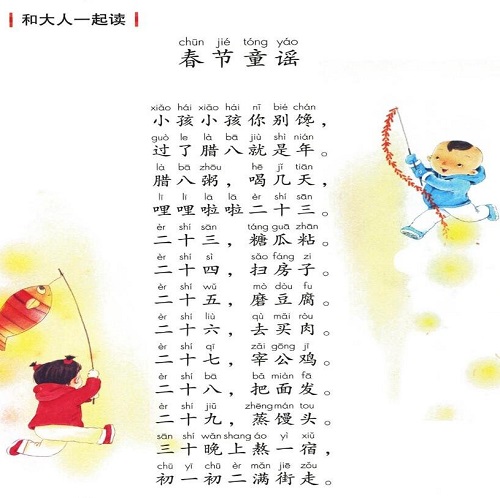 和大人一起读
chūn jié tóng yáo
春节童谣
xiǎo hái xiǎo hái nǐ bié chán
小孩小孩你别馋，
guò le là bā jiù shì nián
过了腊八就是年。
là bā zhōu hē jǐ tiān
腊八粥，喝几天，
lī lī lā lā èr shí sān
哩哩啦啦二十三。
èr shí sān táng guā zhān
二十三，糖瓜粘。
èr shí sì sǎo fáng zi
二十四，扫房子。
èr shí wǔ mò dòu fu
二十五，磨豆腐。
èr shí liù qù mǎi ròu
二十六，去买肉。
èr shí qī zǎi gōng jī
二十七，宰公鸡。
èr shí bā bǎ miàn fā
二十八，把面发。
èr shí jiǔ zhēng mán tou
二十九，蒸馒头。
sān shí wǎn shang áo yì xiǔ
三十晚上熬一宿，
chū yī chū èr mǎn jiē zǒu
初一初二满街走。